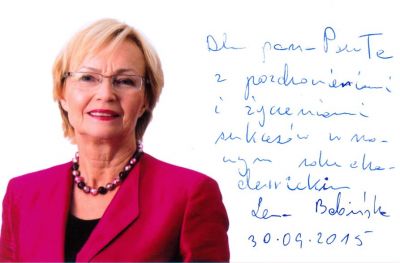 Dla pana Piotra
z pozdrowieniami
i życzeniami
sukcesów w no-
wym roku aka-
demickim
Lena
30.09.2015